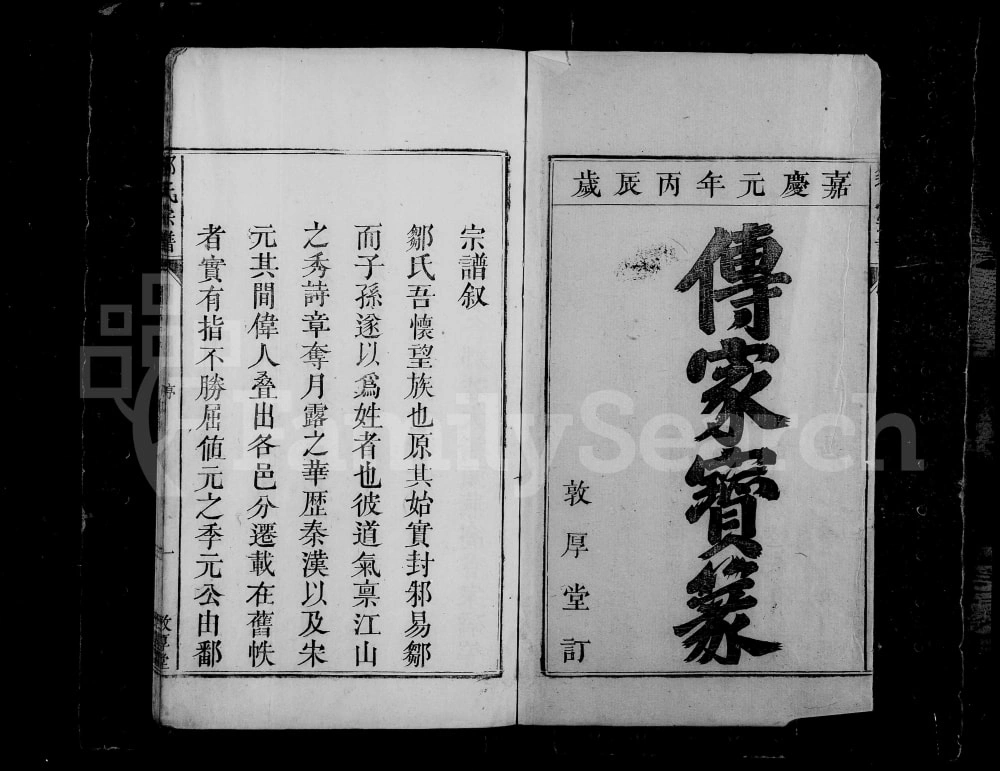 嘉慶元年丙辰歲
傳家寶篆
敦厚堂訂
宗譜叙
鄒氏吾懷望族也原其始實封邾易鄒
而子孫遂以爲姓者也彼道氣禀江山
之秀詩章奪月露之華歷秦漢以及宋
元其間偉人叠出各邑分遷載在舊帙
者實有指不勝屈値元之季元公由鄱
氏宗譜
一
堂
FamilySearch